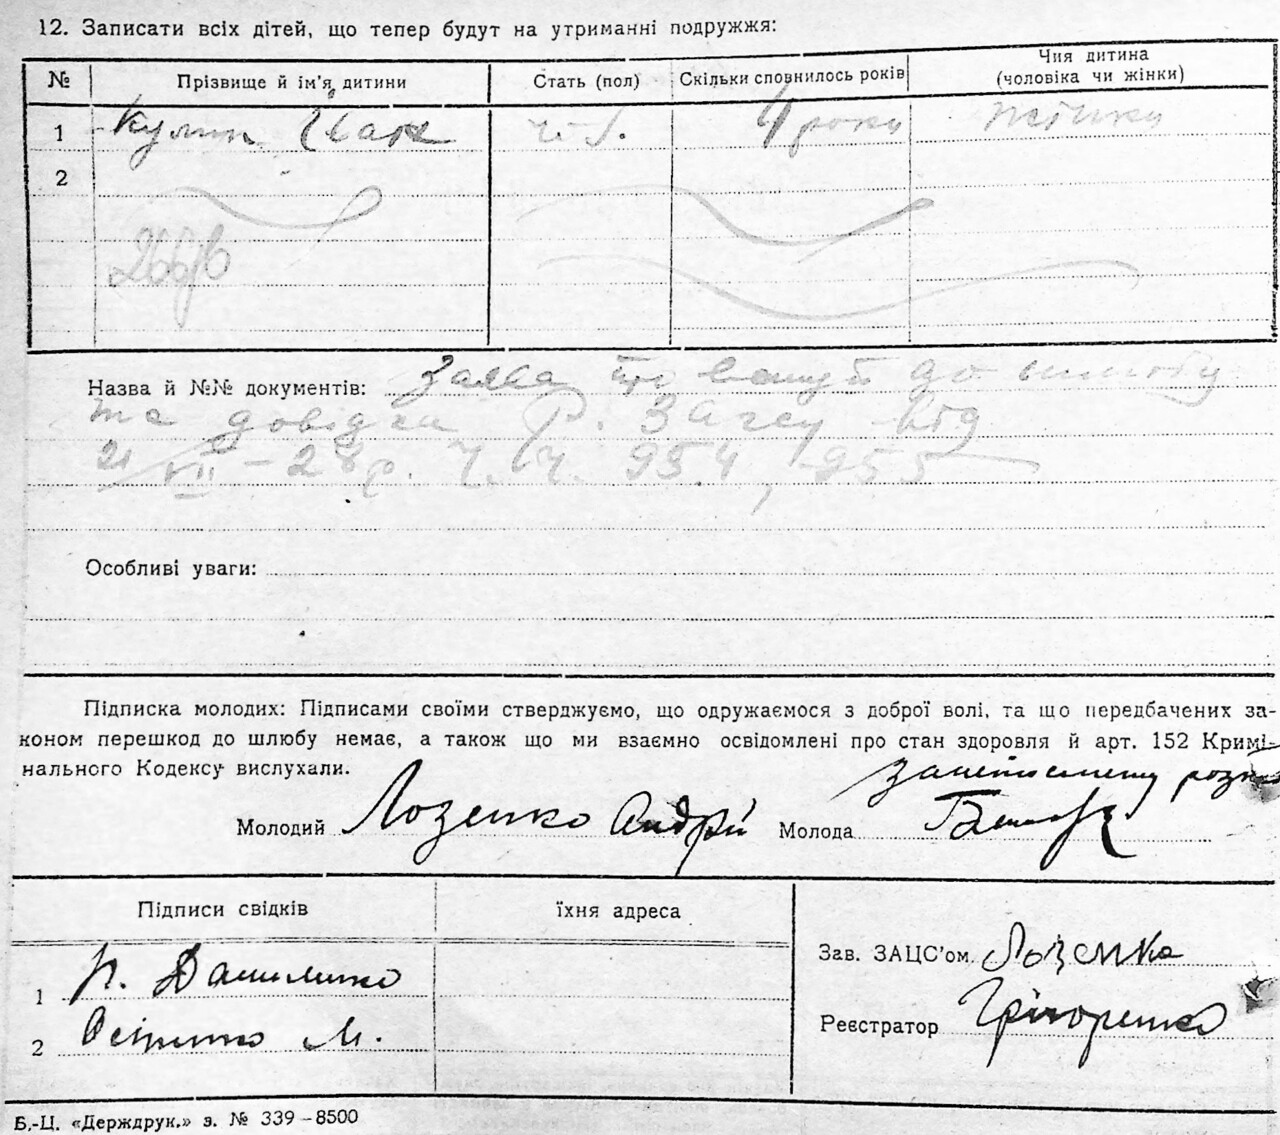 12. Записати всіх дітей, що тепер будут на утриманні подружжя:
№ Прізвище й ім'я дитини Стать (пол) Скільки сповнилось років Чия дитина
(чоловіка чи жінки)
1 Кулик Іван чол. 4 роки жінки
2
Назва й №№ документів: Заява що до шлюбу
та довідка Р. Загсу від
21/VII – 28 р. Ч. Ч. 954, 955
Особливі уваги:
Підписка молодих: Підписами своїми стверджуємо, що одружаємося з доброї волі, та що передбачених за-
коном перешкод до шлюбу немає, а також що ми взаємно освідомлені про стан здоровля й арт. 152 Кримі-
нального Кодексу вислухали.
Молодий Лозенко Андрій Молода
Підписи свідків їхня адреса
Зав. ЗАЦС'ом Лозенко
1 Н. Даниленко
Реєстратор Григоренко
2 М.
Б.-Ц. «Держдрук.» з. № 339–8500